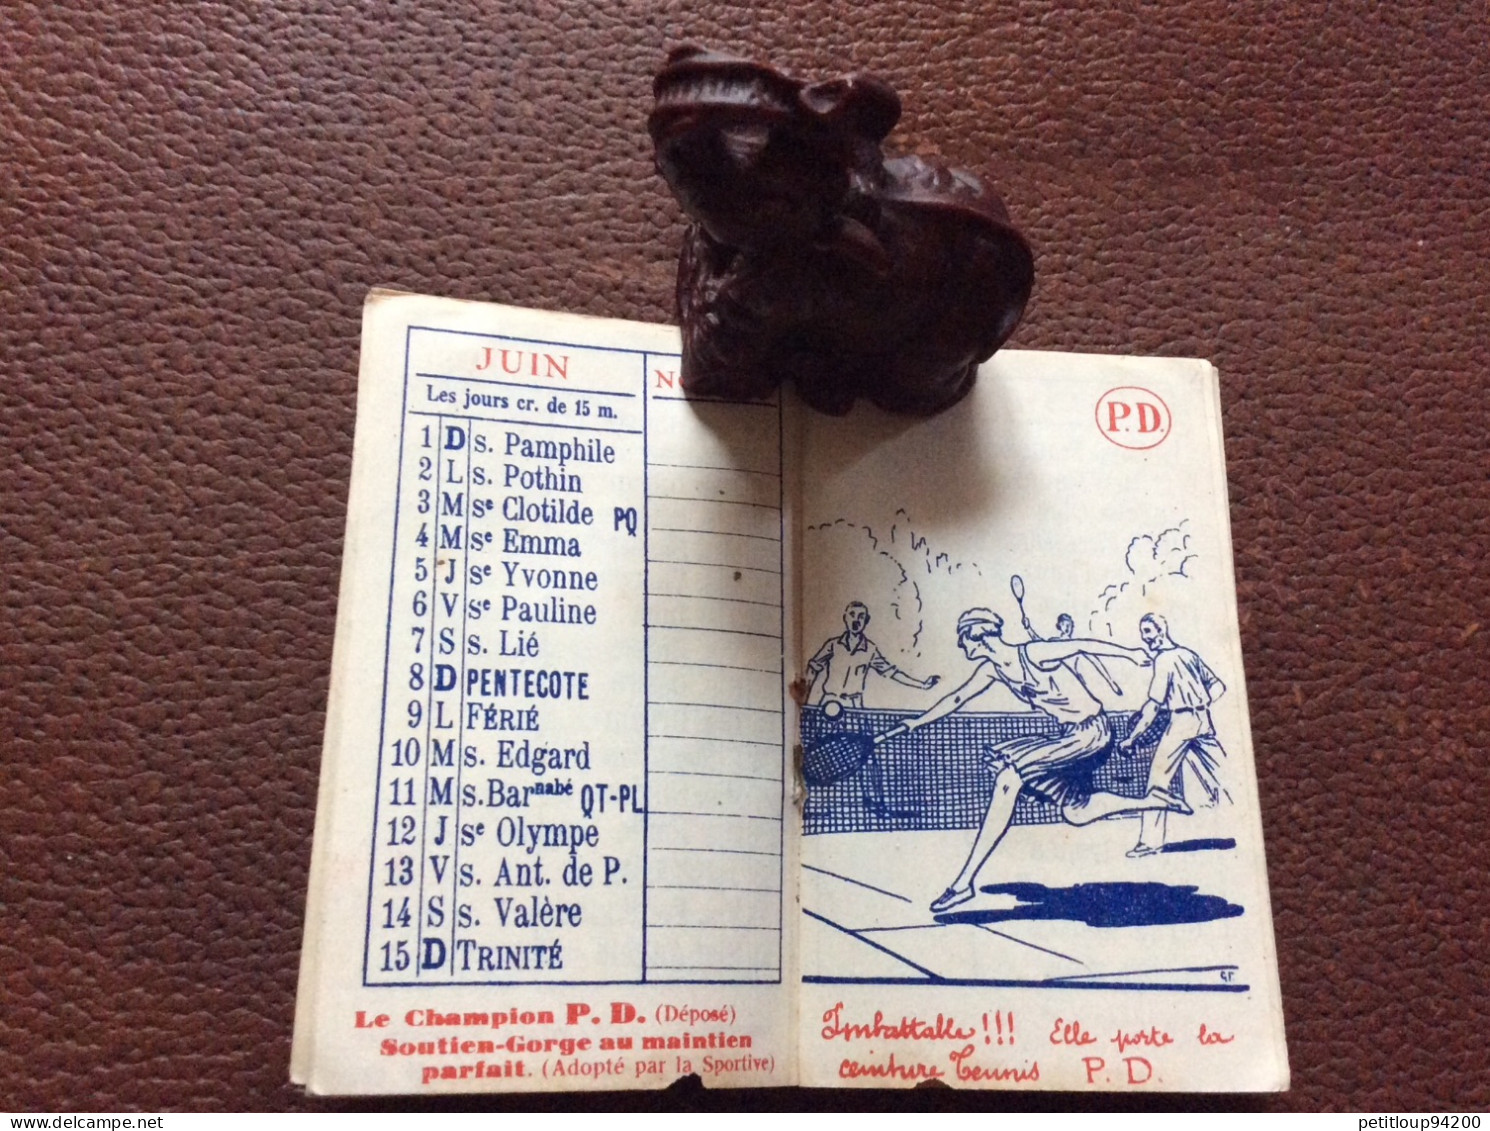 JUIN
Les jours cr. de 15 m.
1 D s. Pamphile
2 L s. Pothin
3 M Se Clotilde PQ
4 M Se Emma
5 J Se Yvonne
6 V Se Pauline
7 S s. Lié
8 D PENTECOTE
9 L FÉRIÉ
10 M s. Edgard
11 M s. Barnabé QT-PL
12 J Se Olympe
13 V s. Ant. de P.
14 S s. Valère
15 D TRINITÉ
Le Champion P. D. (Déposé)
Soutien-Gorge au maintien
parfait. (Adopté par la Sportive)
P.D.
Imbattable !!! Elle porte la
ceinture Tennis P. D.
petitloup94200